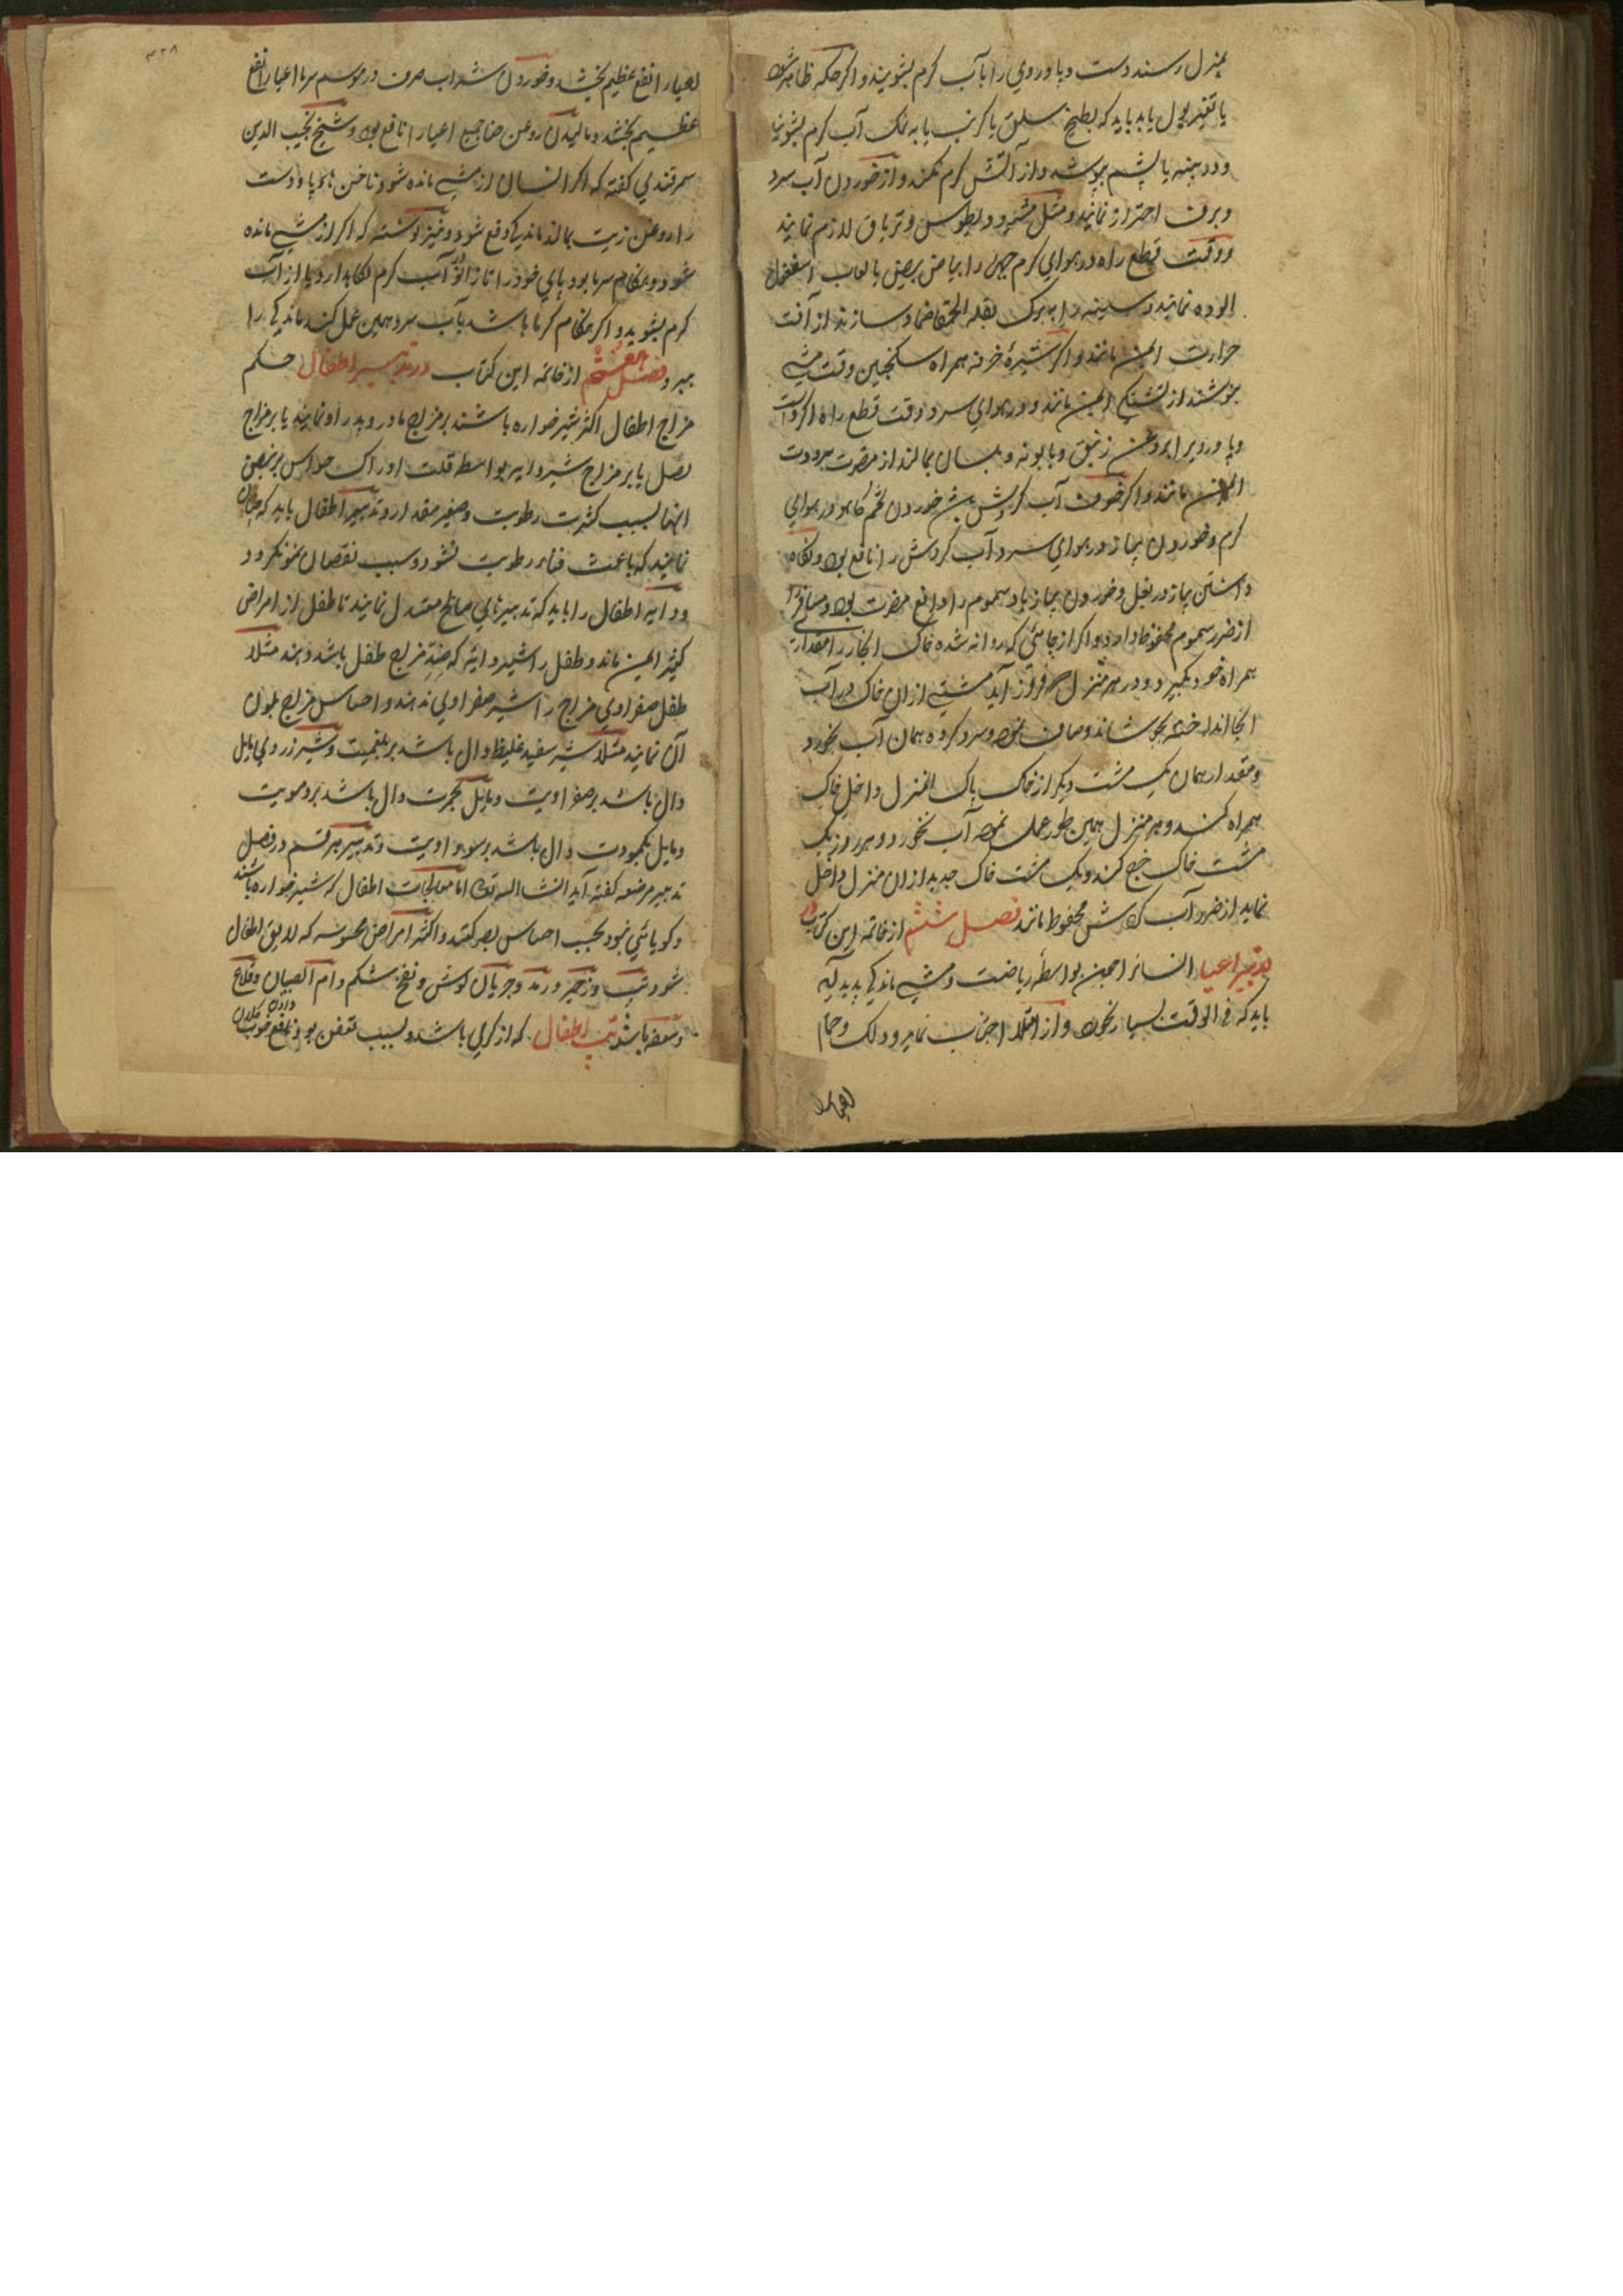 بمنزل رسند دست و پا و روي را بآب كرم بشويند و اكر حكه ظاهر شود
يا تغير بول يابد بايد كه بطبيخ سلق يا كرنب يا به نمك آب كرم بشويند
و در پنبه يا پشم بپوشند و از آتش كرم نكنند و از خوردن آب سرد
و برف احتراز نمايند و مثل مثروديطوس و ترياق لازم نمايند
و وقت قطع راه در هواي كرم چهره را ببياض بيض يا لعاب اسفغول
الوده نمايند و سينه را به برك بقلة الحمقا ضماد سازند از آفت
حرارت ايمن مانند و اكر شيرۀ خرفه همراه سكنجبين وقت مشي
بنوشند از تشنكي ايمن مانند و در هواي سرد وقت قطع راه اكر دست
و پا و رو را بروغن زنبق و بابونه و بلسان بمالند از مضرت برودت
ايمن مانند و اكر خوف آب كردش باشد خوردن تخم كاهو در هواي
كرم و خوردن پياز در هواي سرد آب كردش را نافع بود و نكاه
داشتن پياز در بغل و خوردن پياز باد سموم را دافع مضرت بود و مسافر را
از ضرر سموم محفوظ دارد و اكر از جائي كه روانه شده خاك انجا را مقداري
همراه خود بكيرد و در هر منزل كه فروز آيد مشتي از ان خاك در آب
انجا انداخته بجوشاند و صاف نموده و سرد كرده همان آب بخورد
و مقدار همان يك مشت ديكر از خاك پاك المنزل داخل خاك
همراه كند و هر منزل همين طور عمل نموده آب بخورد و هر روز يك
مشت خاك خرج كند و يك مشت خاك جديد از ان منزل داخل
نمايد از ضرر آب كردش محفوظ ماند فصل ششم از خاتمه اين كتاب در
تدبير اعيا انسانرا چون بواسطۀ رياضت و مشي ماندكي پديد آيد
بايد كه في الوقت بسيار نخورد و از امتلا اجتناب نمايد و دلك و حمام
اعيا را
اعيا را نفع عظيم بخشد و خوردن شراب صرف در موسم سرما اعيا را نفع
عظيم بخشد و ماليدن روغن حنا جميع اعيا را نافع بود و شيخ نجيب الدين
سمرقندي كفته كه اكر انسان از مشي مانده شود ناخن هاي پا و دست
را روغن زيت بمالد ماندكي دفع شود و نيز نوشته كه اكر از مشي مانده
شود و هنكام سرما بود پاي خود را تا زانو در آب كرم نكاهدارد يا از آب
كرم بشويد و اكر هنكام كرما باشد بآب سرد همين عمل كند ماندكي را
ببرد فصل هفتم از خاتمه اين كتاب در تدابير اطفال حكم
مزاج اطفال اكثر شير خواره باشند بر مزاج مادر و پدر او نمايند يا بر مزاج
فصل يا بر مزاج شير دايه بواسطه قلت ادراك حواس بر نبض
انها بسبب كثرت رطوبت و صغير مقدار و تدبير اطفال بايد كه چنان
نمايند كه باعث فناء رطوبت نشود و سبب نقصان نمو نكردد
و دايه اطفال را بايد كه تدبيرهاي صالح معتدل نمايند تا طفل از امراض
كثير ايمن ماند و طفل را شير دايۀ كه ضد مزاج طفل باشد دهند مثلا
طفل صفراوي مزاج را شير صفراوي ندهند و احساس مزاج بلون
آن نمايند مثلا شير سفيد غليظ دال باشد بر بلغميت و شير زردي مايل
دال باشد بر صفراويت و مايل بحمرت دال باشد بر دمويت
و مايل بكمودت دال باشد بر سوداويت و تدبير هر قسم در فصل
تدبير مرضعه كفته آيد انشا الله تعالي اما معالجات اطفال كه شير خواره باشند
و كويائي نبود بحسب احساس بصر كنند و اكثر امراض محسوسه كه لايق اطفال
شود تب و زحير و رمد و جريان كوش و نفخ شكم و ام الصبيان و قلاع
و سعفه باشد تب اطفال كه از كرمي باشد و بسبب تعفن بود دادن